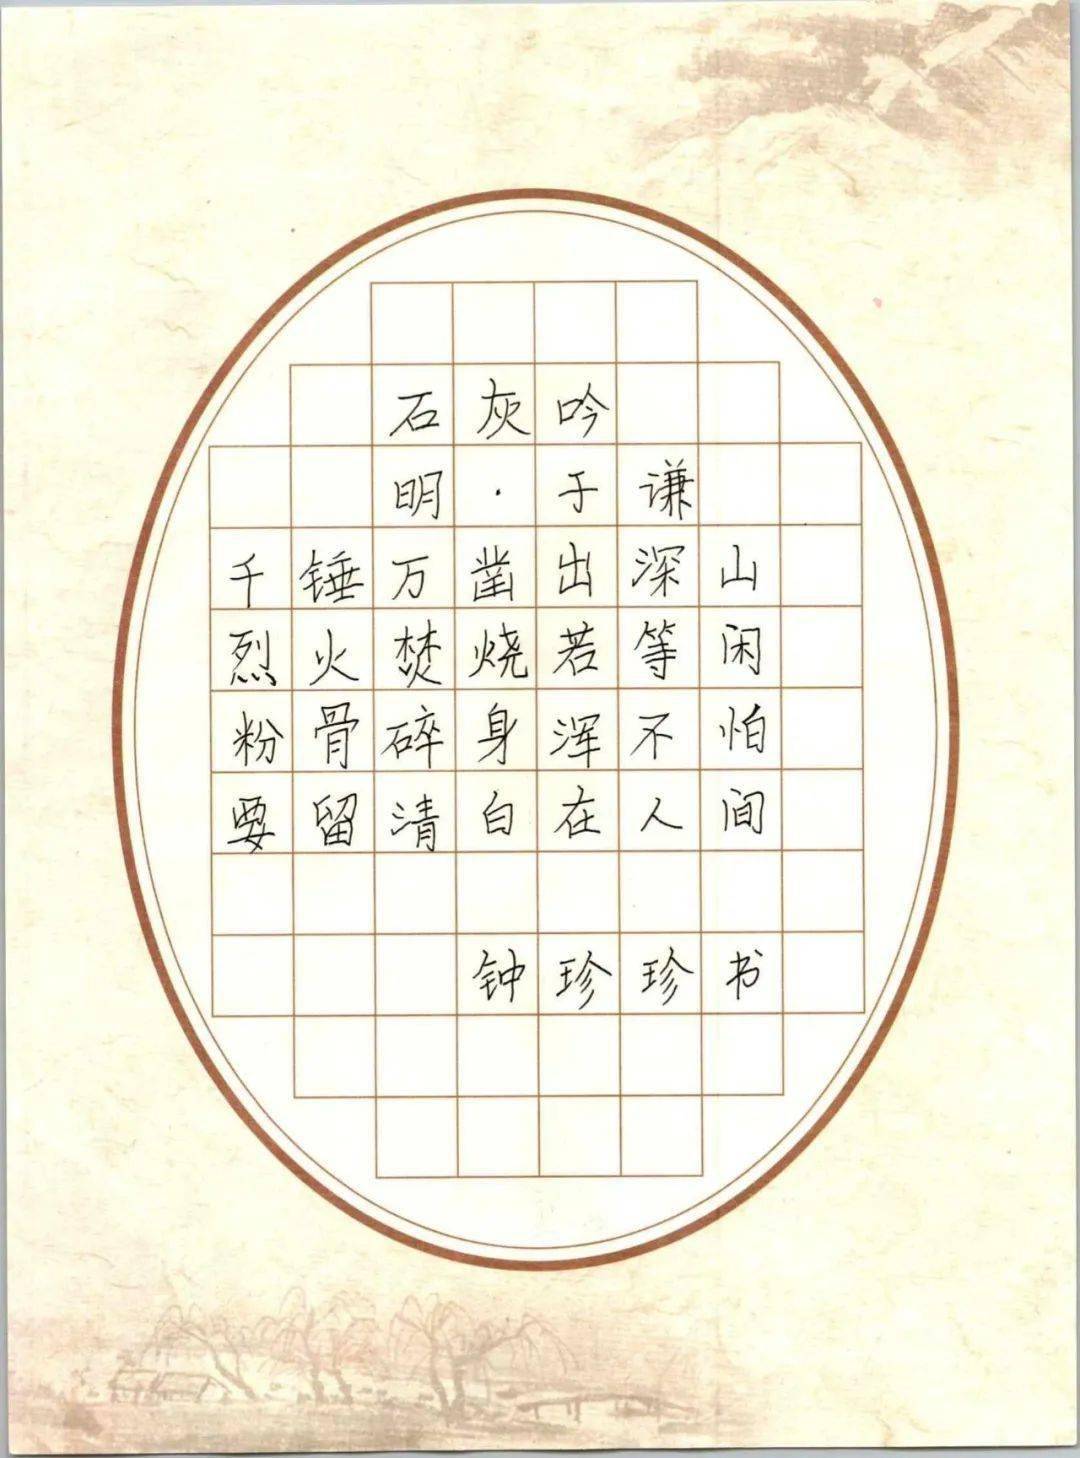 石灰吟
明·于谦
千锤万凿出深山
烈火焚烧若等闲
粉骨碎身浑不怕
要留清白在人间
钟珍珍书